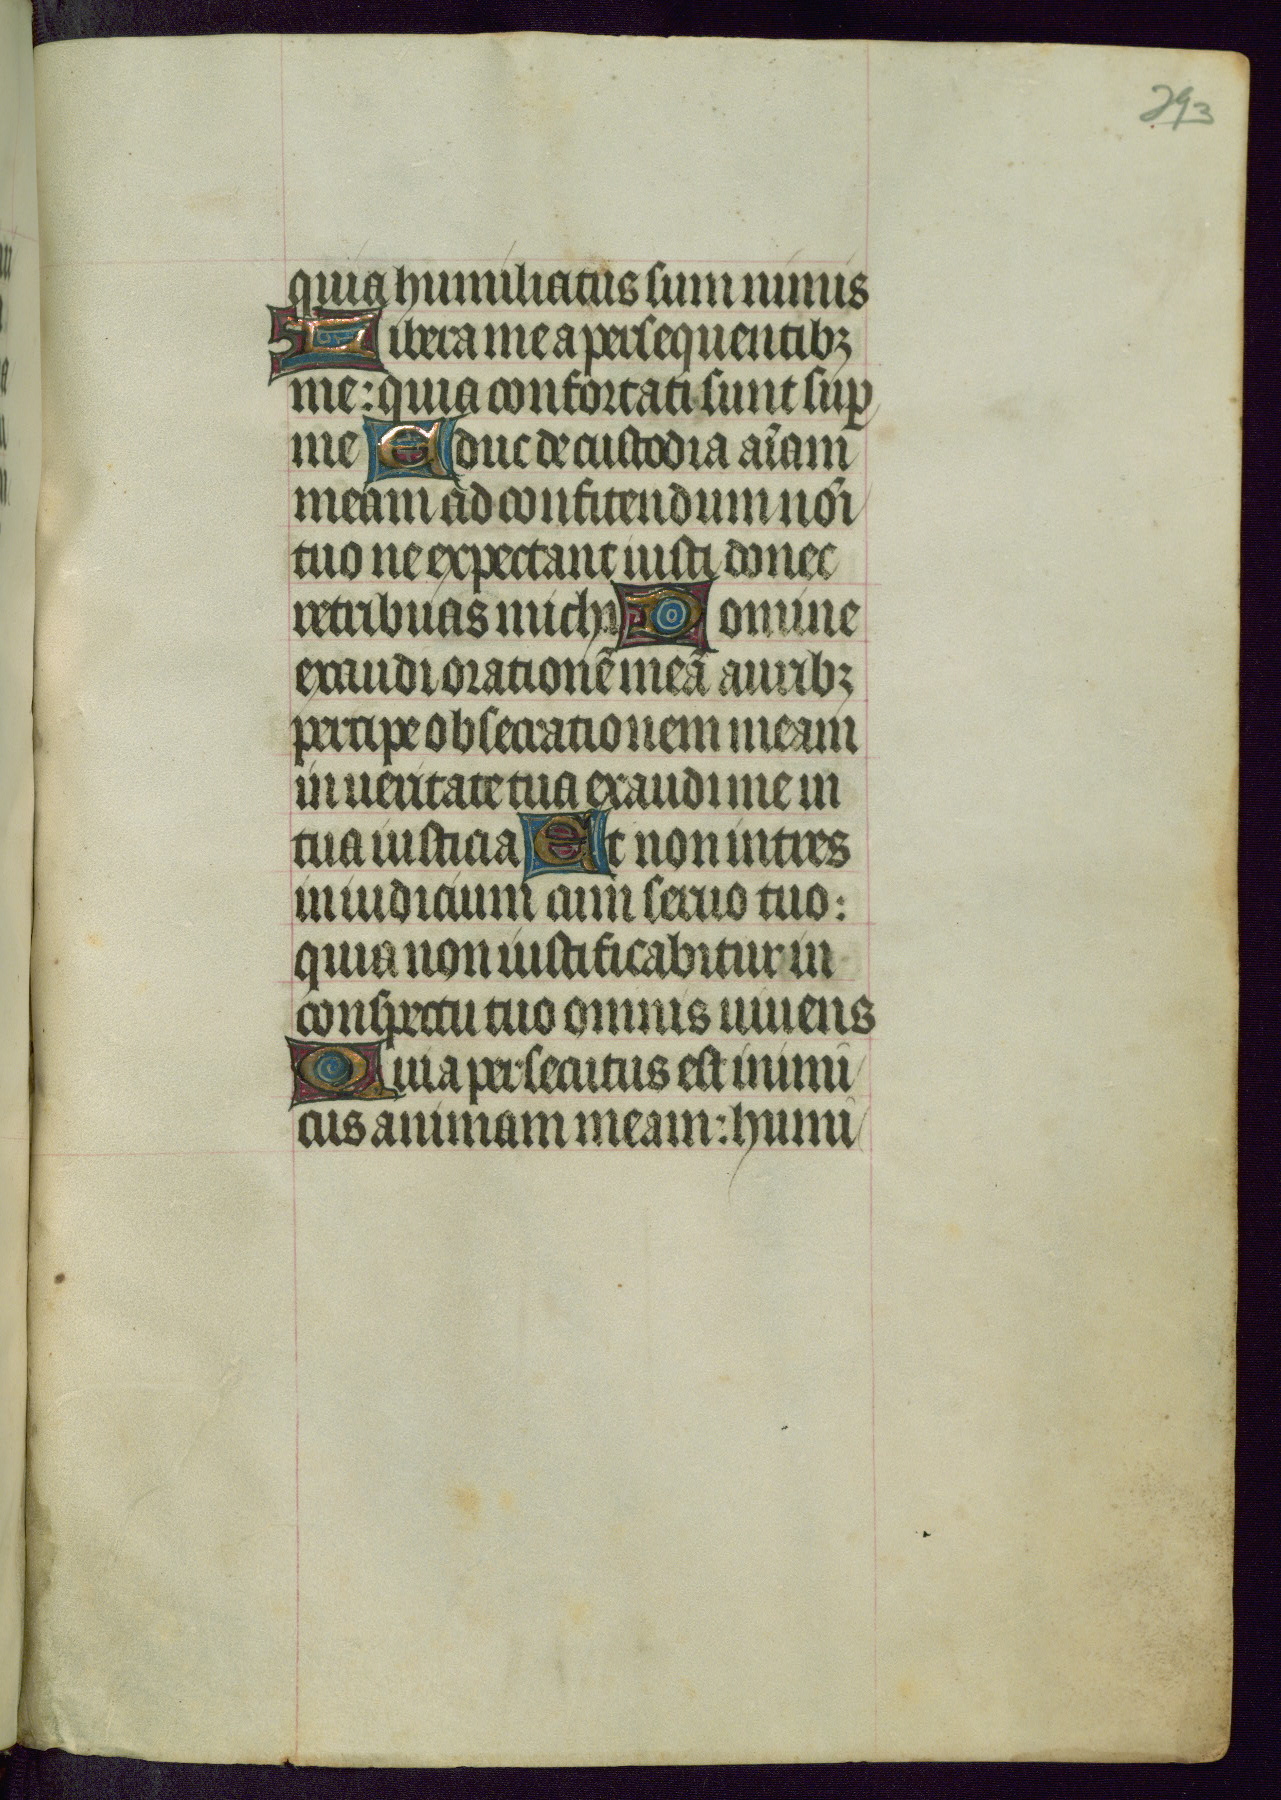 293
quia humiliatus sum nimis
Libera me a persequentibꝫ
me: quia confortati sunt suꝑ
me Educ de custodia aīam
meam ad confitendum noı̄
tuo ne expectant iusti donec
retribuas michi Domine
exaudi orationē meā auribꝫ
percipe obsecrationem meam
in ueritate tua exaudi me in
tua iusticia Et non intres
in iudicium cum seruo tuo:
quia non iustificabitur in
conspectu tuo omnis uiuens
Quia persecutus est inimi
cus animam meam: humi